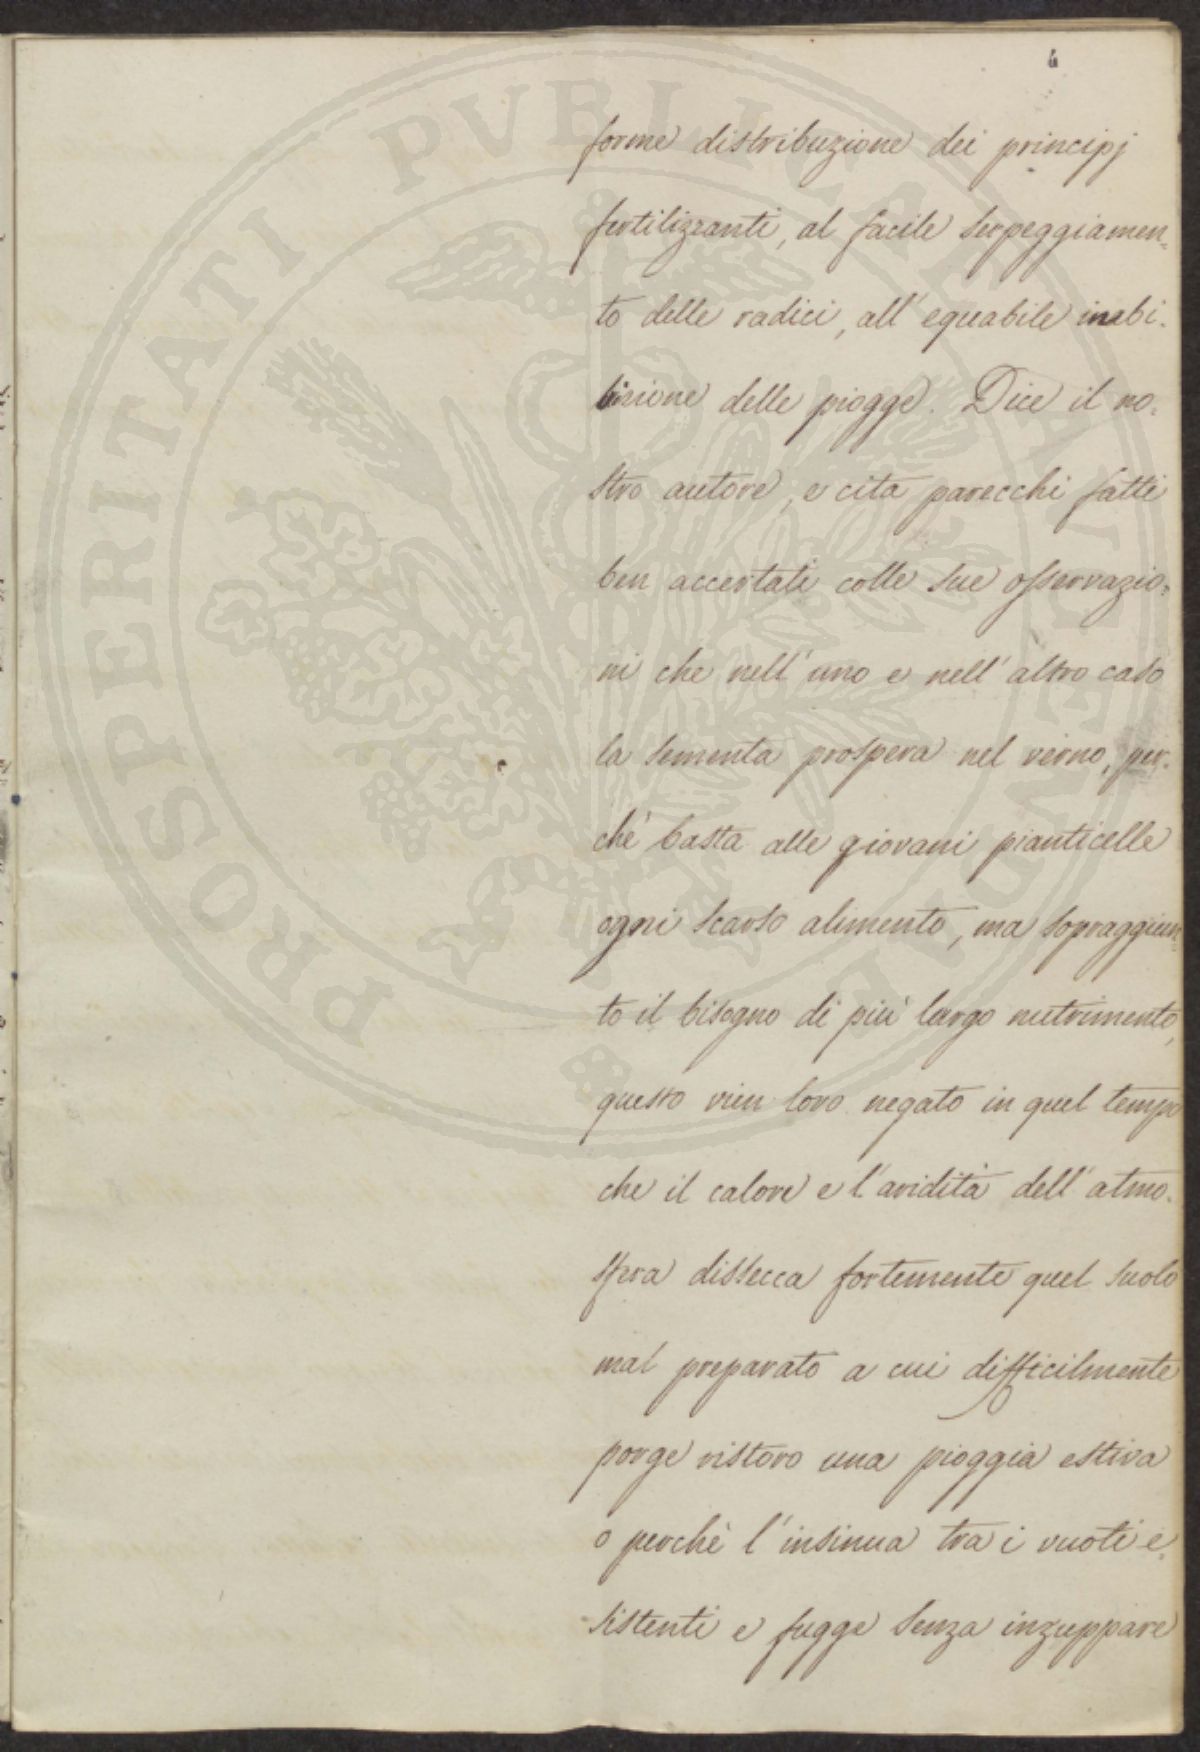 4
forme distribuzione dei principj
fertilizzanti, al facile serpeggiamen=
to delle radici, all'equabile imbi=
bizione delle piogge. Dice il no=
stro autore, e cita parecchi fatti
ben accertati colle sue osservazio=
ni che nell'uno e nell'altro caso
la sementa prospera nel verno, per=
chè basta alle giovani pianticelle
ogni scarso alimento, ma sopraggiun=
to il bisogno di più largo nutrimento,
questo vien loro negato in quel tempo
che il calore e l'aridità dell'atmo=
sfera dissecca fortemente quel suolo
mal preparato a cui difficilmente
porge ristoro una pioggia estiva
o perchè s'insinua tra i vuoti e=
sistenti e fugge senza inzuppare
PROSPERITATI PVBLICAE AVGENDAE